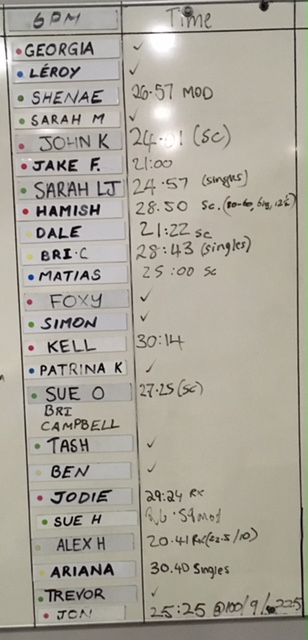 6PM Time
GEORGIA ✓
LÉROY ✓
SHENAE 26.57 MOD
SARAH M ✓
JOHN K (SC)
JAKE F. 21:00
SARAH LJ 24.57 (singles)
HAMISH 28.50 Sc.
DALE 21:22 SC
BRI.C 28:43 (singles)
MATIAS 25:00 Sc
FOXY ✓
SIMON ✓
KELL 30:14
PATRINA K ✓
SUE O 27.25 (SC)
BRI
CAMPBELL
TASH ✓
BEN ✓
JODIE 29:24 Rx
SUE H
ALEX H 20.41 Rx(22.5/10)
ARIANA 30.40 Singles
TREVOR ✓
JON 25:25 @100/9/